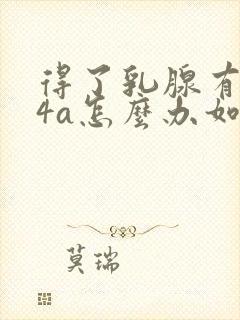 得了乳腺
4a怎麼办如
莫瑞